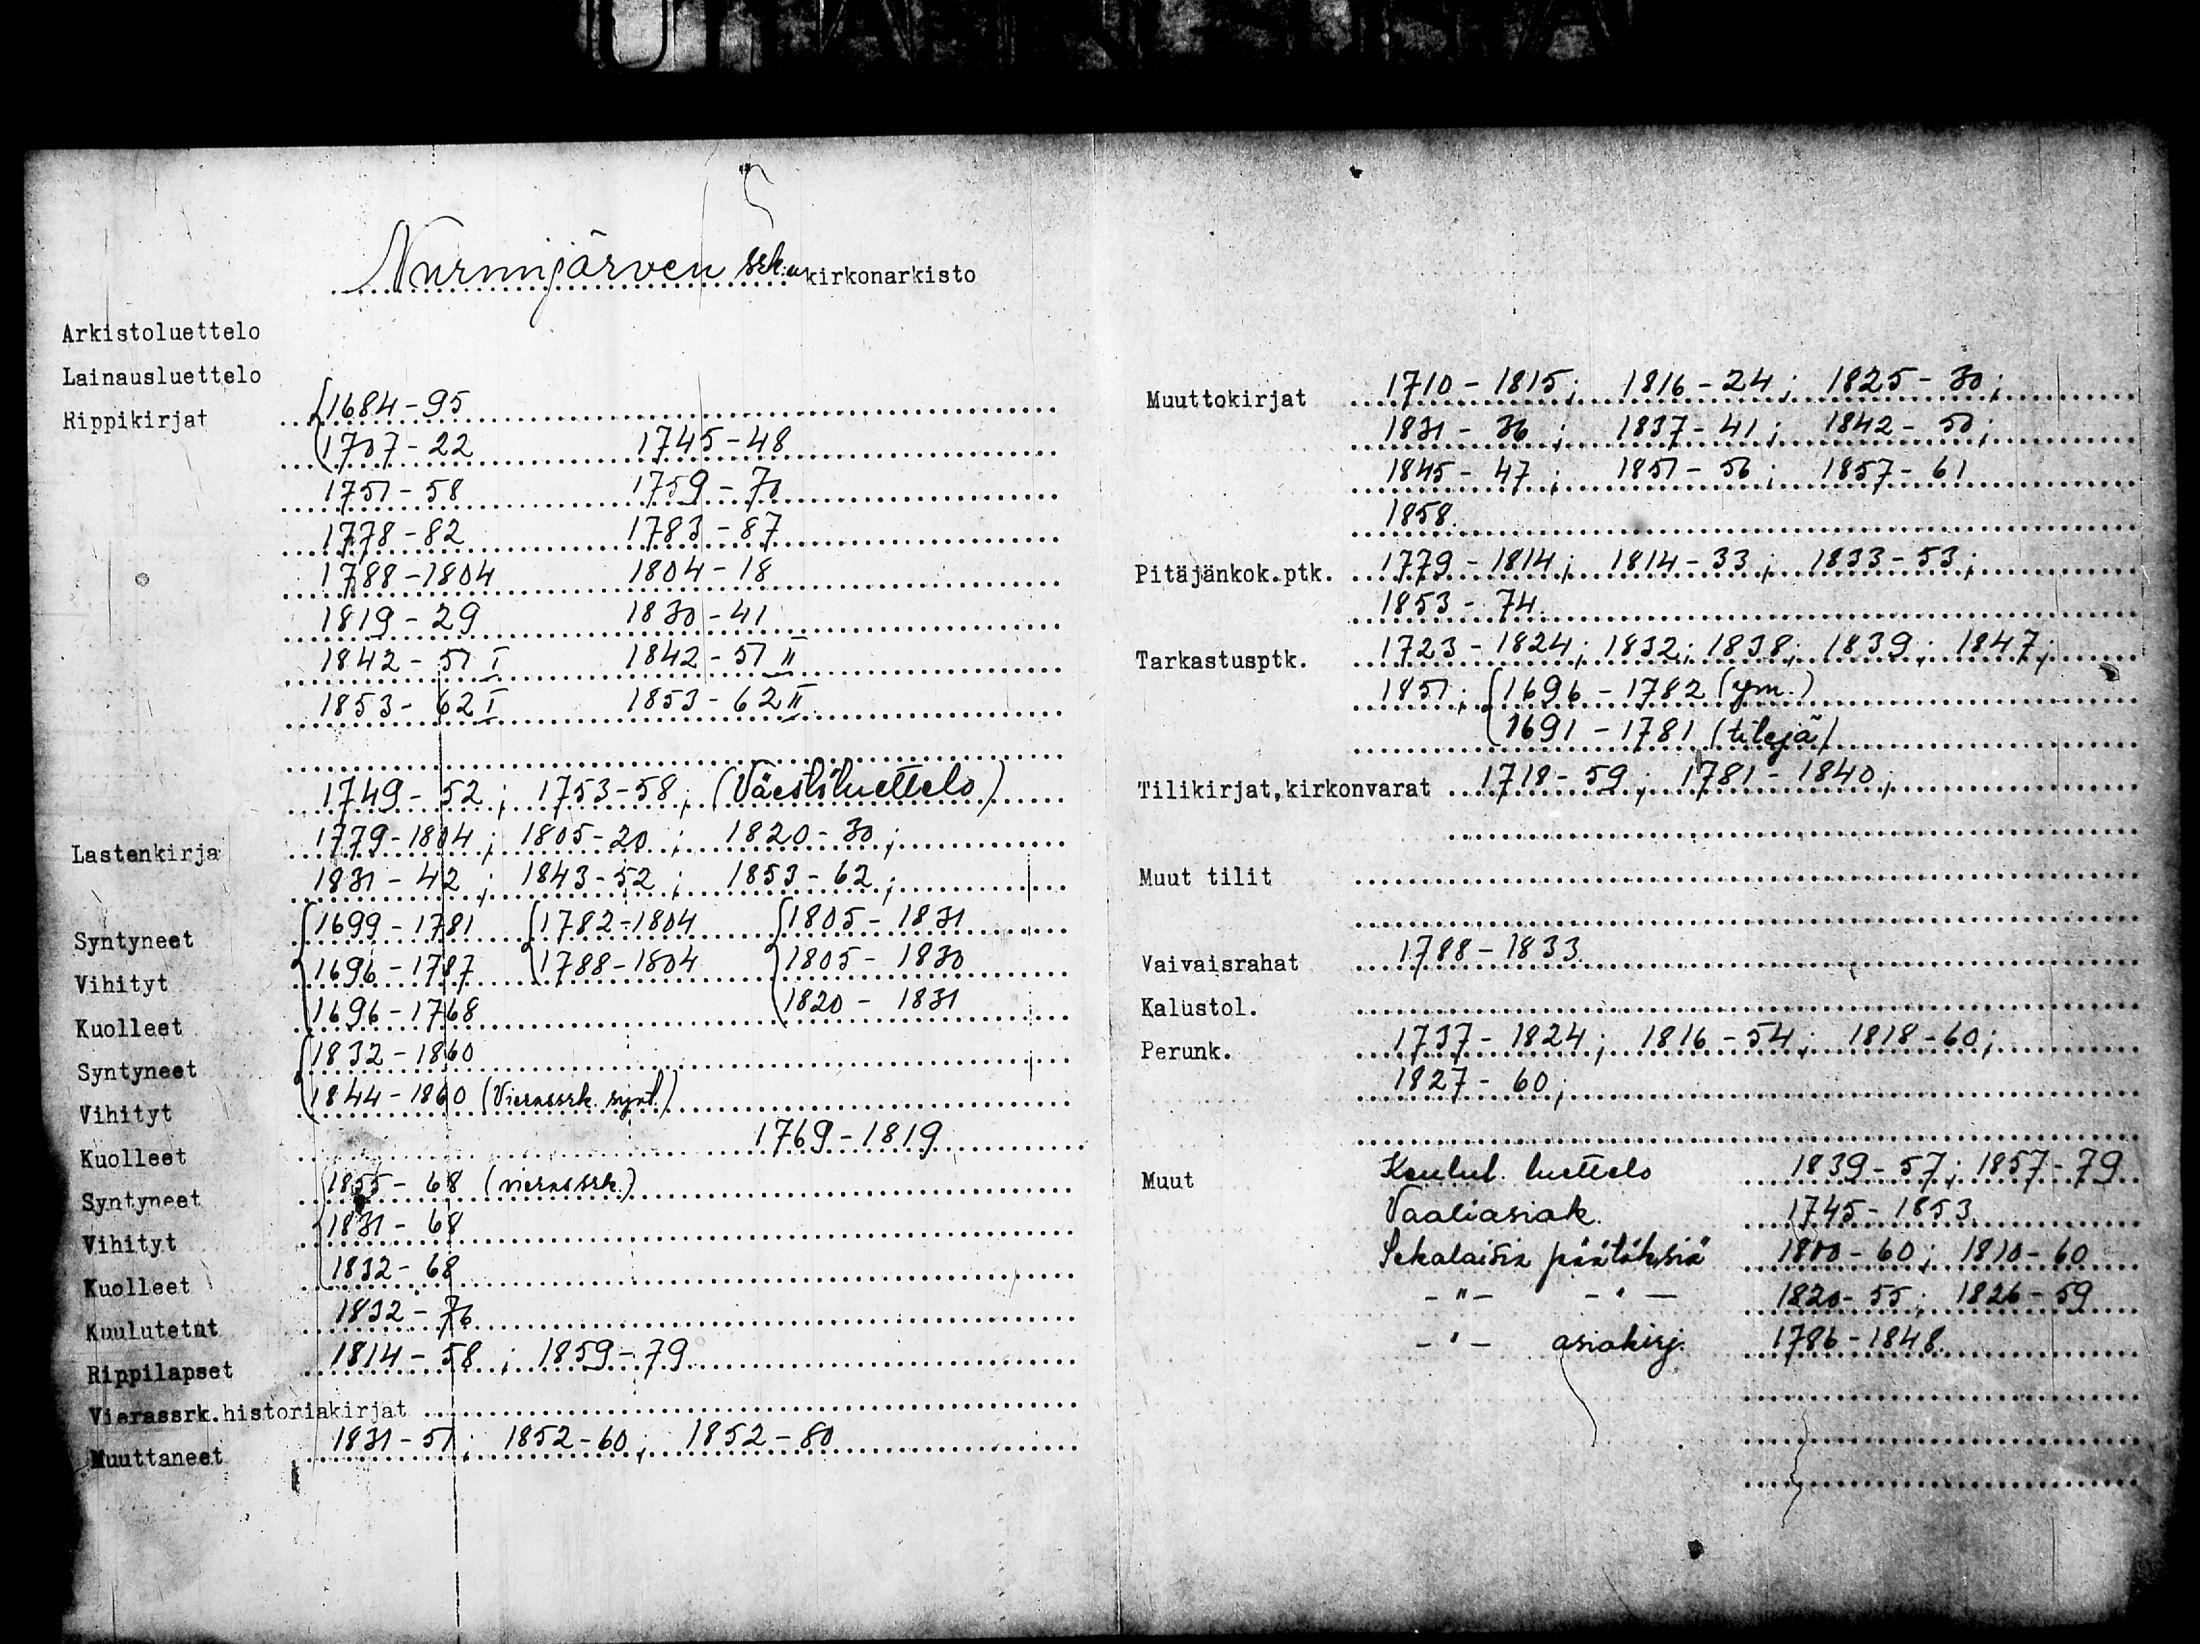 Nurmijärven srk:n kirkonarkisto
Arkistoluettelo
Lainausluettelo
Rippikirjat 1684-95
1707-22 1745-48
1751-58 1759-70
1778-82 1783-87
1788-1804 1804-18
1819-29 1830-41
1842-51 I 1842-51 II
1853-62 I 1853-62 II
1749-52; 1753-58; (Väestöluettelo)
Lastenkirja 1779-1804; 1805-20; 1820-30;
1831-42; 1843-52; 1853-62;
Syntyneet 1699-1781 1782-1804 1805-1831
Vihityt 1696-1787 1788-1804 1805-1830
Kuolleet 1696-1768 1820-1831
Syntyneet 1832-1860
Vihityt 1844-1860 (Vierassrk. synt.)
Kuolleet 1769-1819
Syntyneet 1855-68 (vierassrk.)
Vihityt 1831-68
Kuolleet 1832-68
Kuulutetut 1832-76
Rippilapset 1814-58; 1859-79
Vierassrk.historiakirjat
Muuttaneet 1831-51; 1852-60; 1852-80
Muuttokirjat 1710-1815; 1816-24; 1825-30;
1831-36; 1837-41; 1842-50;
1845-47; 1851-56; 1857-61
1858.
Pitäjänkok.ptk. 1779-1814; 1814-33; 1833-53;
1853-74.
Tarkastusptk. 1723-1824; 1832; 1838; 1839; 1847;
1851; 1696-1782 (ym.)
1691-1781 (tilejä)
Tilikirjat,kirkonvarat 1718-59; 1781-1840;
Muut tilit
Vaivaisrahat 1788-1833
Kalustol.
Perunk. 1737-1824; 1816-54; 1818-60;
1827-60;
Muut Kuulut. luettelo 1839-57; 1857-79
Vaaliasiak. 1745-1853
Sekalaisia päätöksiä 1800-60; 1810-60
-"- -"- 1820-55; 1826-59
-"- asiakirj. 1786-1848.